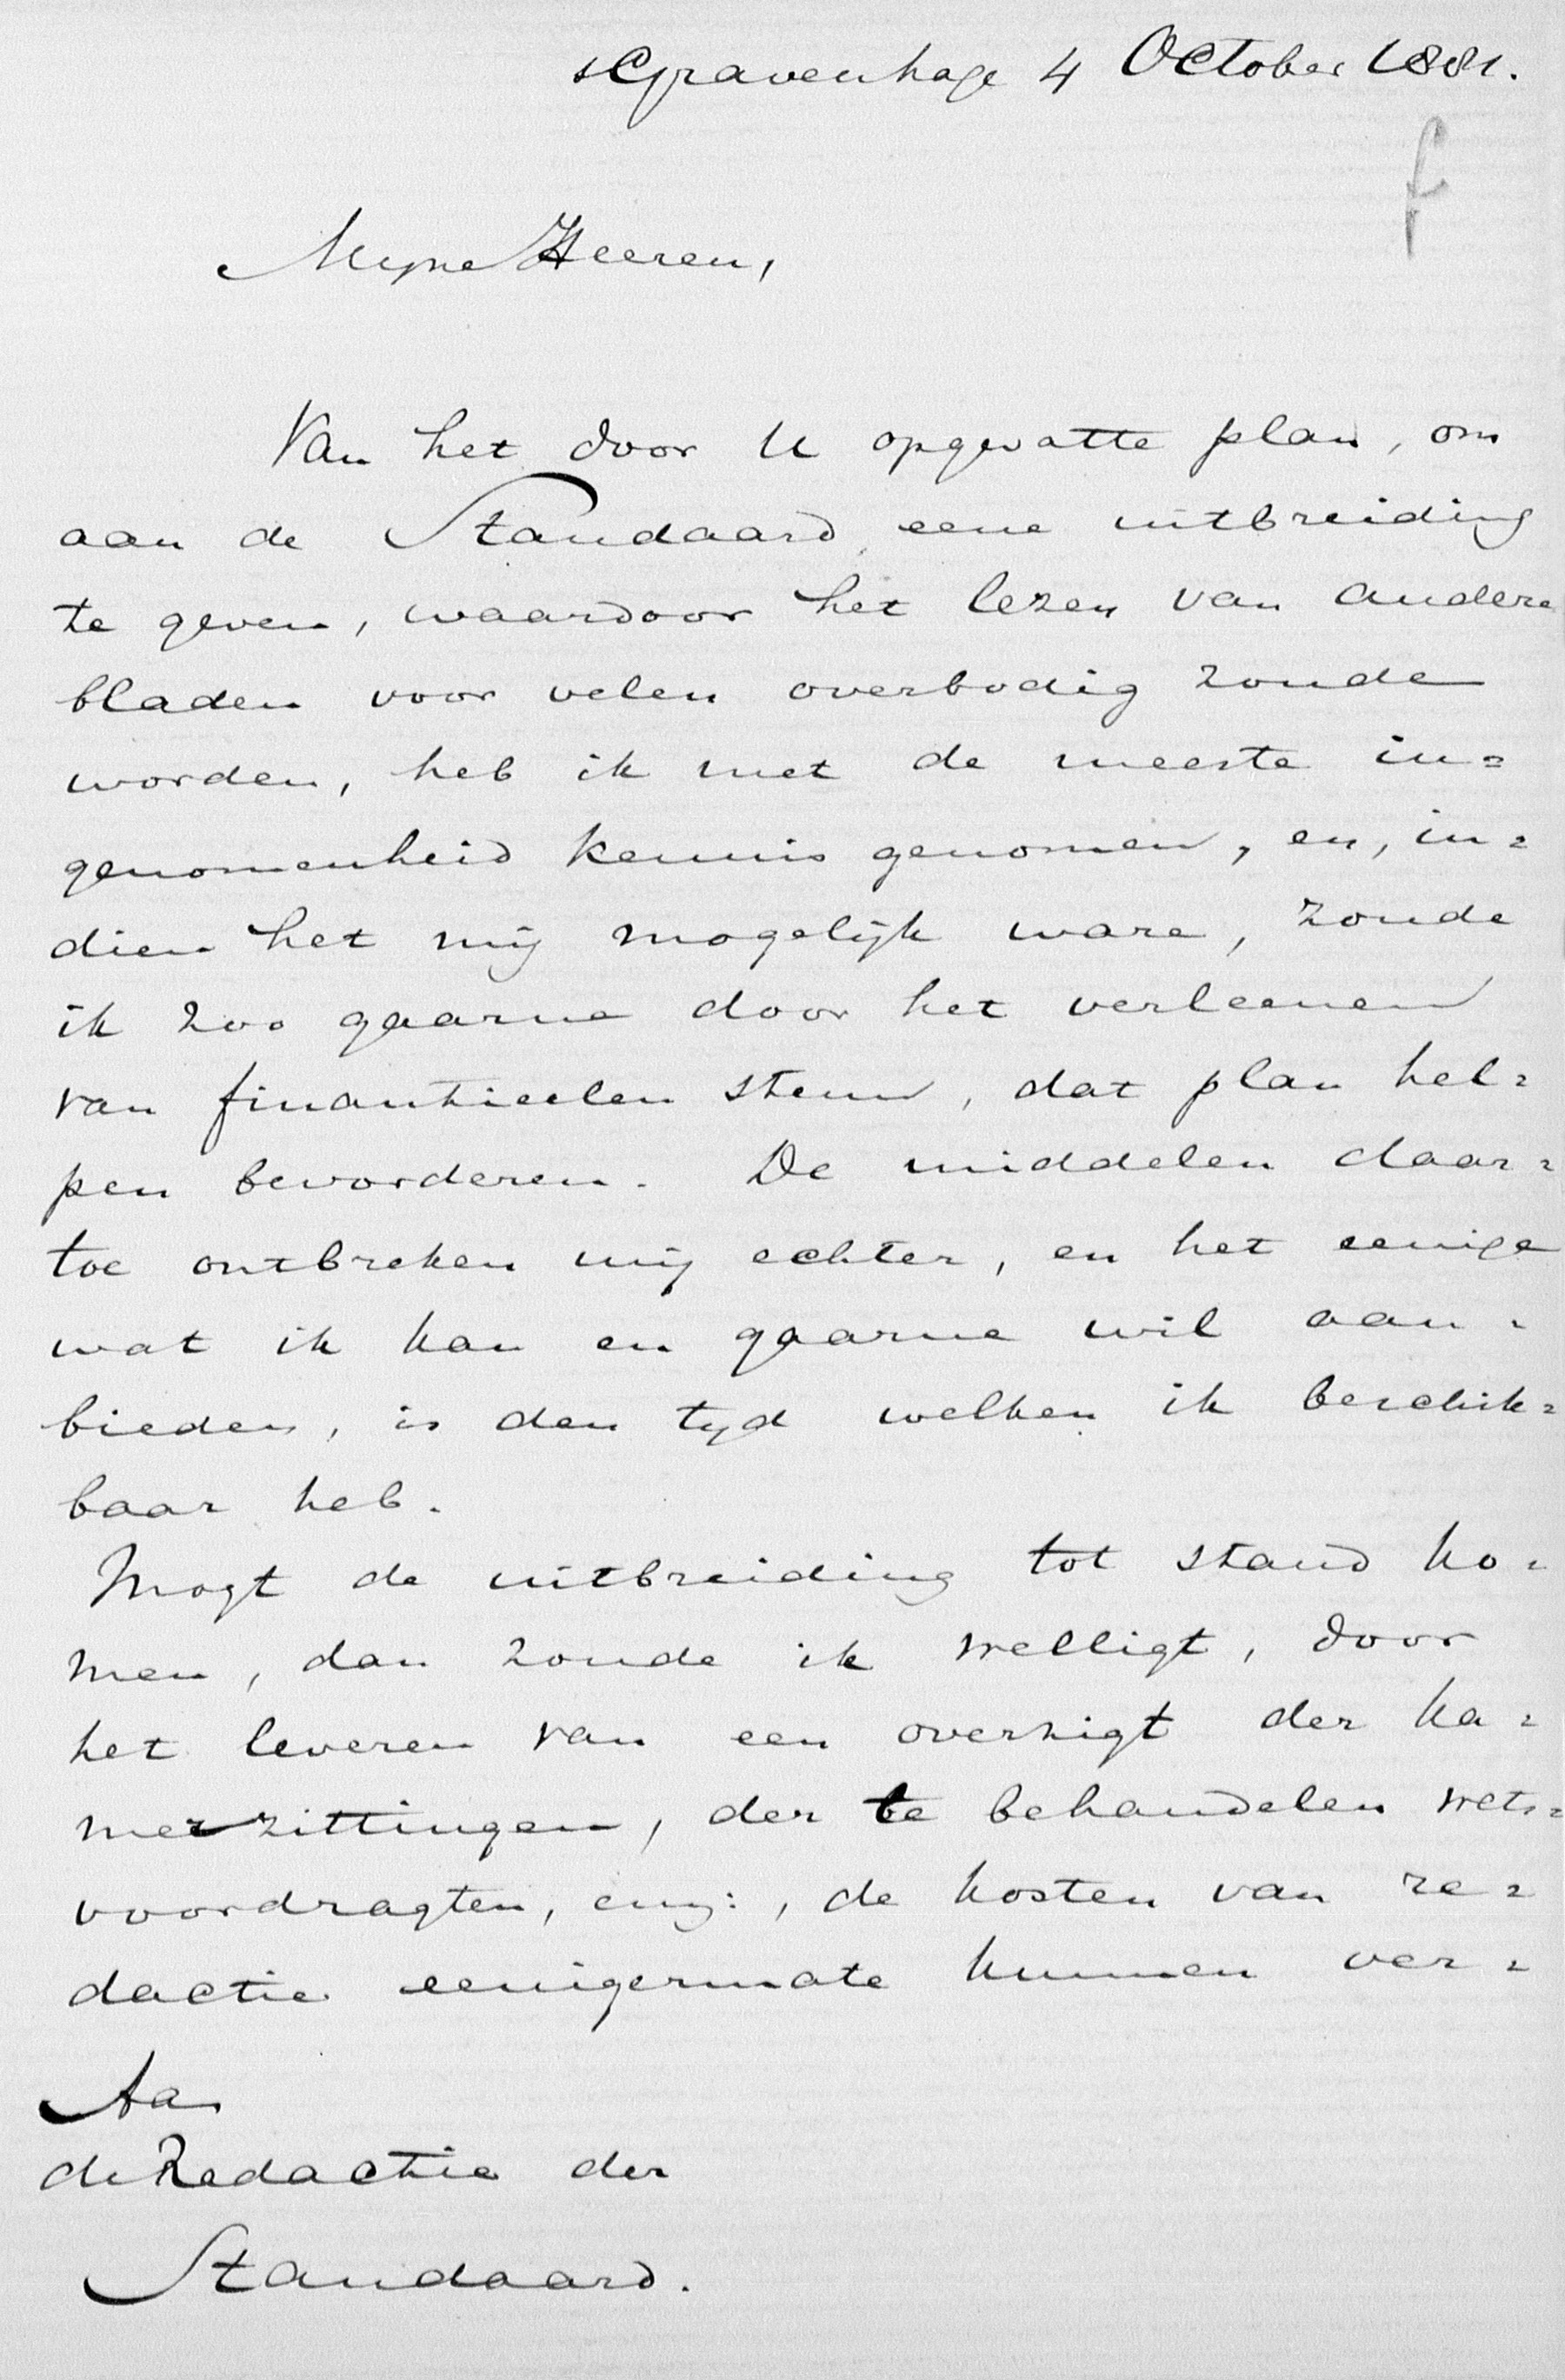 sGravenhage 4 October 1881.
f
Myne Heeren,
Van het door U opgevatte plan, om
aan de Standaard eene uitbreiding
te geven, waardoor het lezen van andere
bladen voor velen overbodig zoude
worden, heb ik met de meeste in=
genomenheid kennis genomen, en, in=
dien het mij mogelijk ware, zoude
ik zoo gaarne door het verleenen
van finantieelen steun, dat plan hel=
pen bevorderen. De middelen daar=
toe ontbreken mij echter, en het eenige
wat ik kan en gaarne wil aan=
bieden, is den tyd welken ik beschik=
baar heb.
Mogt de uitbreiding tot stand ko=
men, dan zoude ik welligt, door
het leveren van een overzigt der Ka=
merzittingen, der te behandelen wets=
voordragten, enz:, de kosten van re=
dactie eenigermate kunnen ver=
Aan
de Redactie der
Standaard.